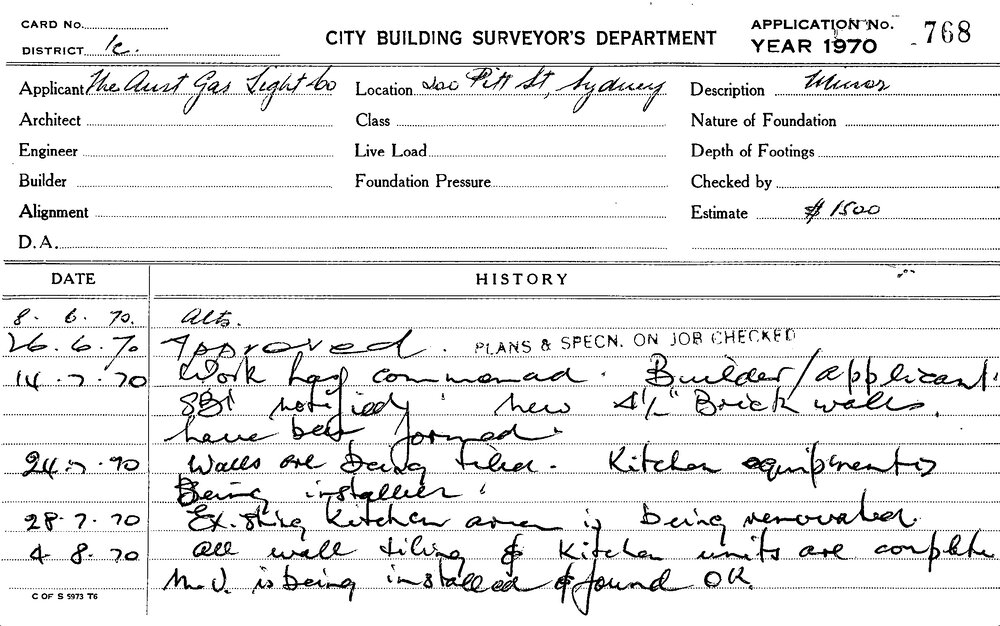 CARD No.
DISTRICT 1c.
CITY BUILDING SURVEYOR'S DEPARTMENT
APPLICATION No. 768
YEAR 1970
Applicant The Aust Gas Light Co
Location 200 Pitt St, Sydney
Description Minor
Architect
Class
Nature of Foundation
Engineer
Live Load
Depth of Footings
Builder
Foundation Pressure
Checked by
Alignment
Estimate $1500
D.A.
DATE HISTORY
8. 6. 70. Alts.
26. 6. 70 Approved. PLANS & SPECN. ON JOB CHECKED
14.7.70 Work has commenced. Builder/applicant
notified. New 4½" Brick walls.
have been formed.
24.7.70 Walls are being tiled. Kitchen equipment is
Being installed.
28.7.70 Existing Kitchen area is being renovated.
4.8.70 All wall tiling & Kitchen units are complete
M.V. is being installed & found OK.
C OF S 5973 T6